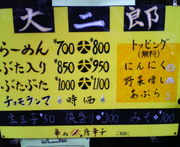 大二郎
らーめん ¥700 大 ¥800
ぶた入り ¥850 大 ¥950
ぶたぶた ¥1000 大 ¥1100
チョモランマ 時価
トッピング
(無料)
にんにく
野菜増し
あぶら
生玉子 ¥50
¥100
みそ ¥100
唐辛子